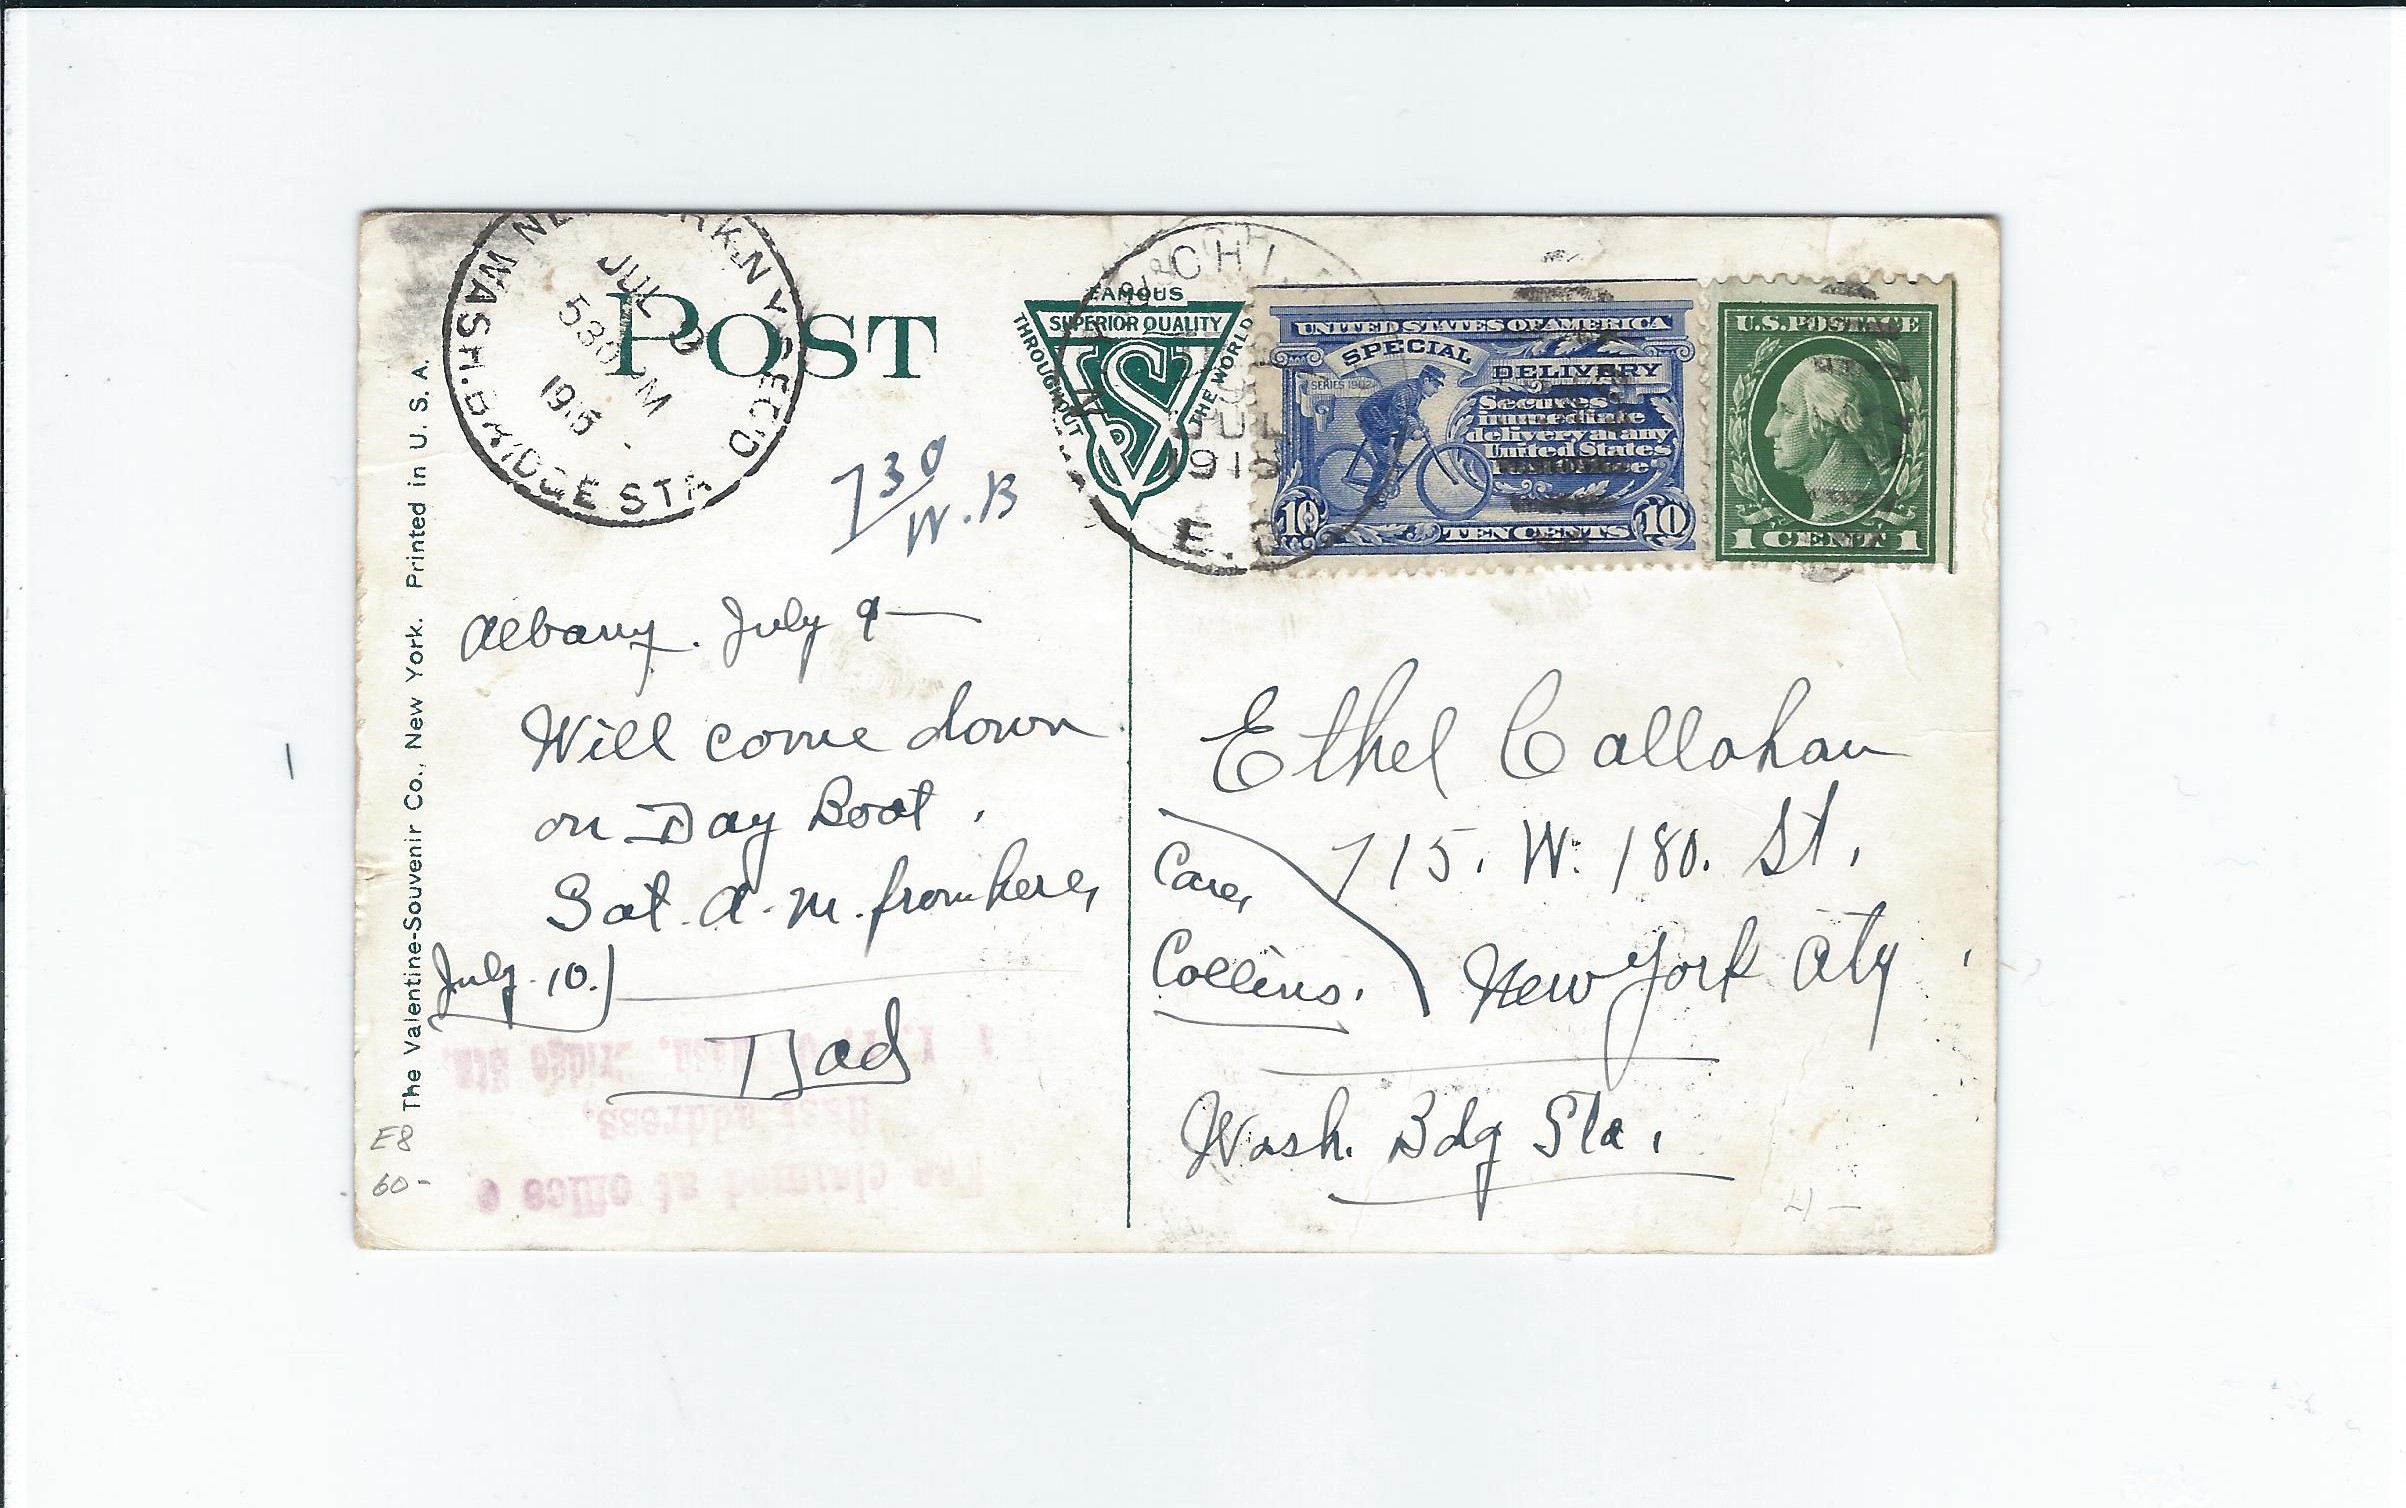 NEW YORK, N.Y. REC'D
WASH. BRIDGE STA
JUL
530 PM
1915
POST
FAMOUS
SUPERIOR QUALITY
THROUGHOUT
THE WORLD
VS
HIGH
JUL
1915
UNITED STATES OF AMERICA
SPECIAL
DELIVERY
SERIES 1902
Secures
immediate
delivery at any
United States
10 TEN CENTS 10
U.S. POSTAGE
1 CENT 1
7 30
W. B
Albany. July 9—
Will come down
on Day Boat.
Sat. A.M. from here,
July 10.)
Dad
The Valentine-Souvenir Co., New York. Printed in U. S. A.
E8
60-
Fee claimed at office
first address,
Wash. Bridge Sta.
Ethel Callahan
715. W. 180. St.
Care,
Collins.
New York City
Wash. Bdg Sta.
4-